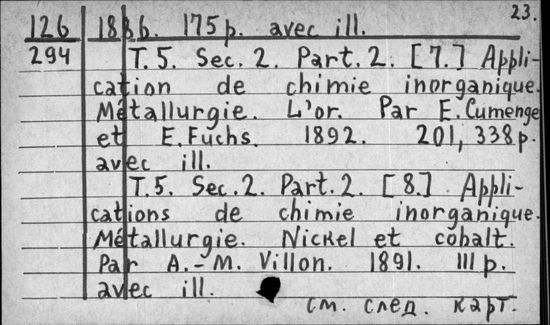 23.
126 1886. 175 p. avec ill.
294 T. 5. Sec. 2. Part. 2. [7.] Appli-
cation de chimie inorganique.
Métallurgie. L'or. Par E. Cumenge
et E. Fuchs. 1892. 201, 338 p.
avec ill.
T. 5. Sec. 2. Part. 2. [8.] Appli-
cations de chimie inorganique.
Métallurgie. Nickel et cobalt.
Par A.-M. Villon. 1891. 111 p.
avec ill.
см. след. карт.